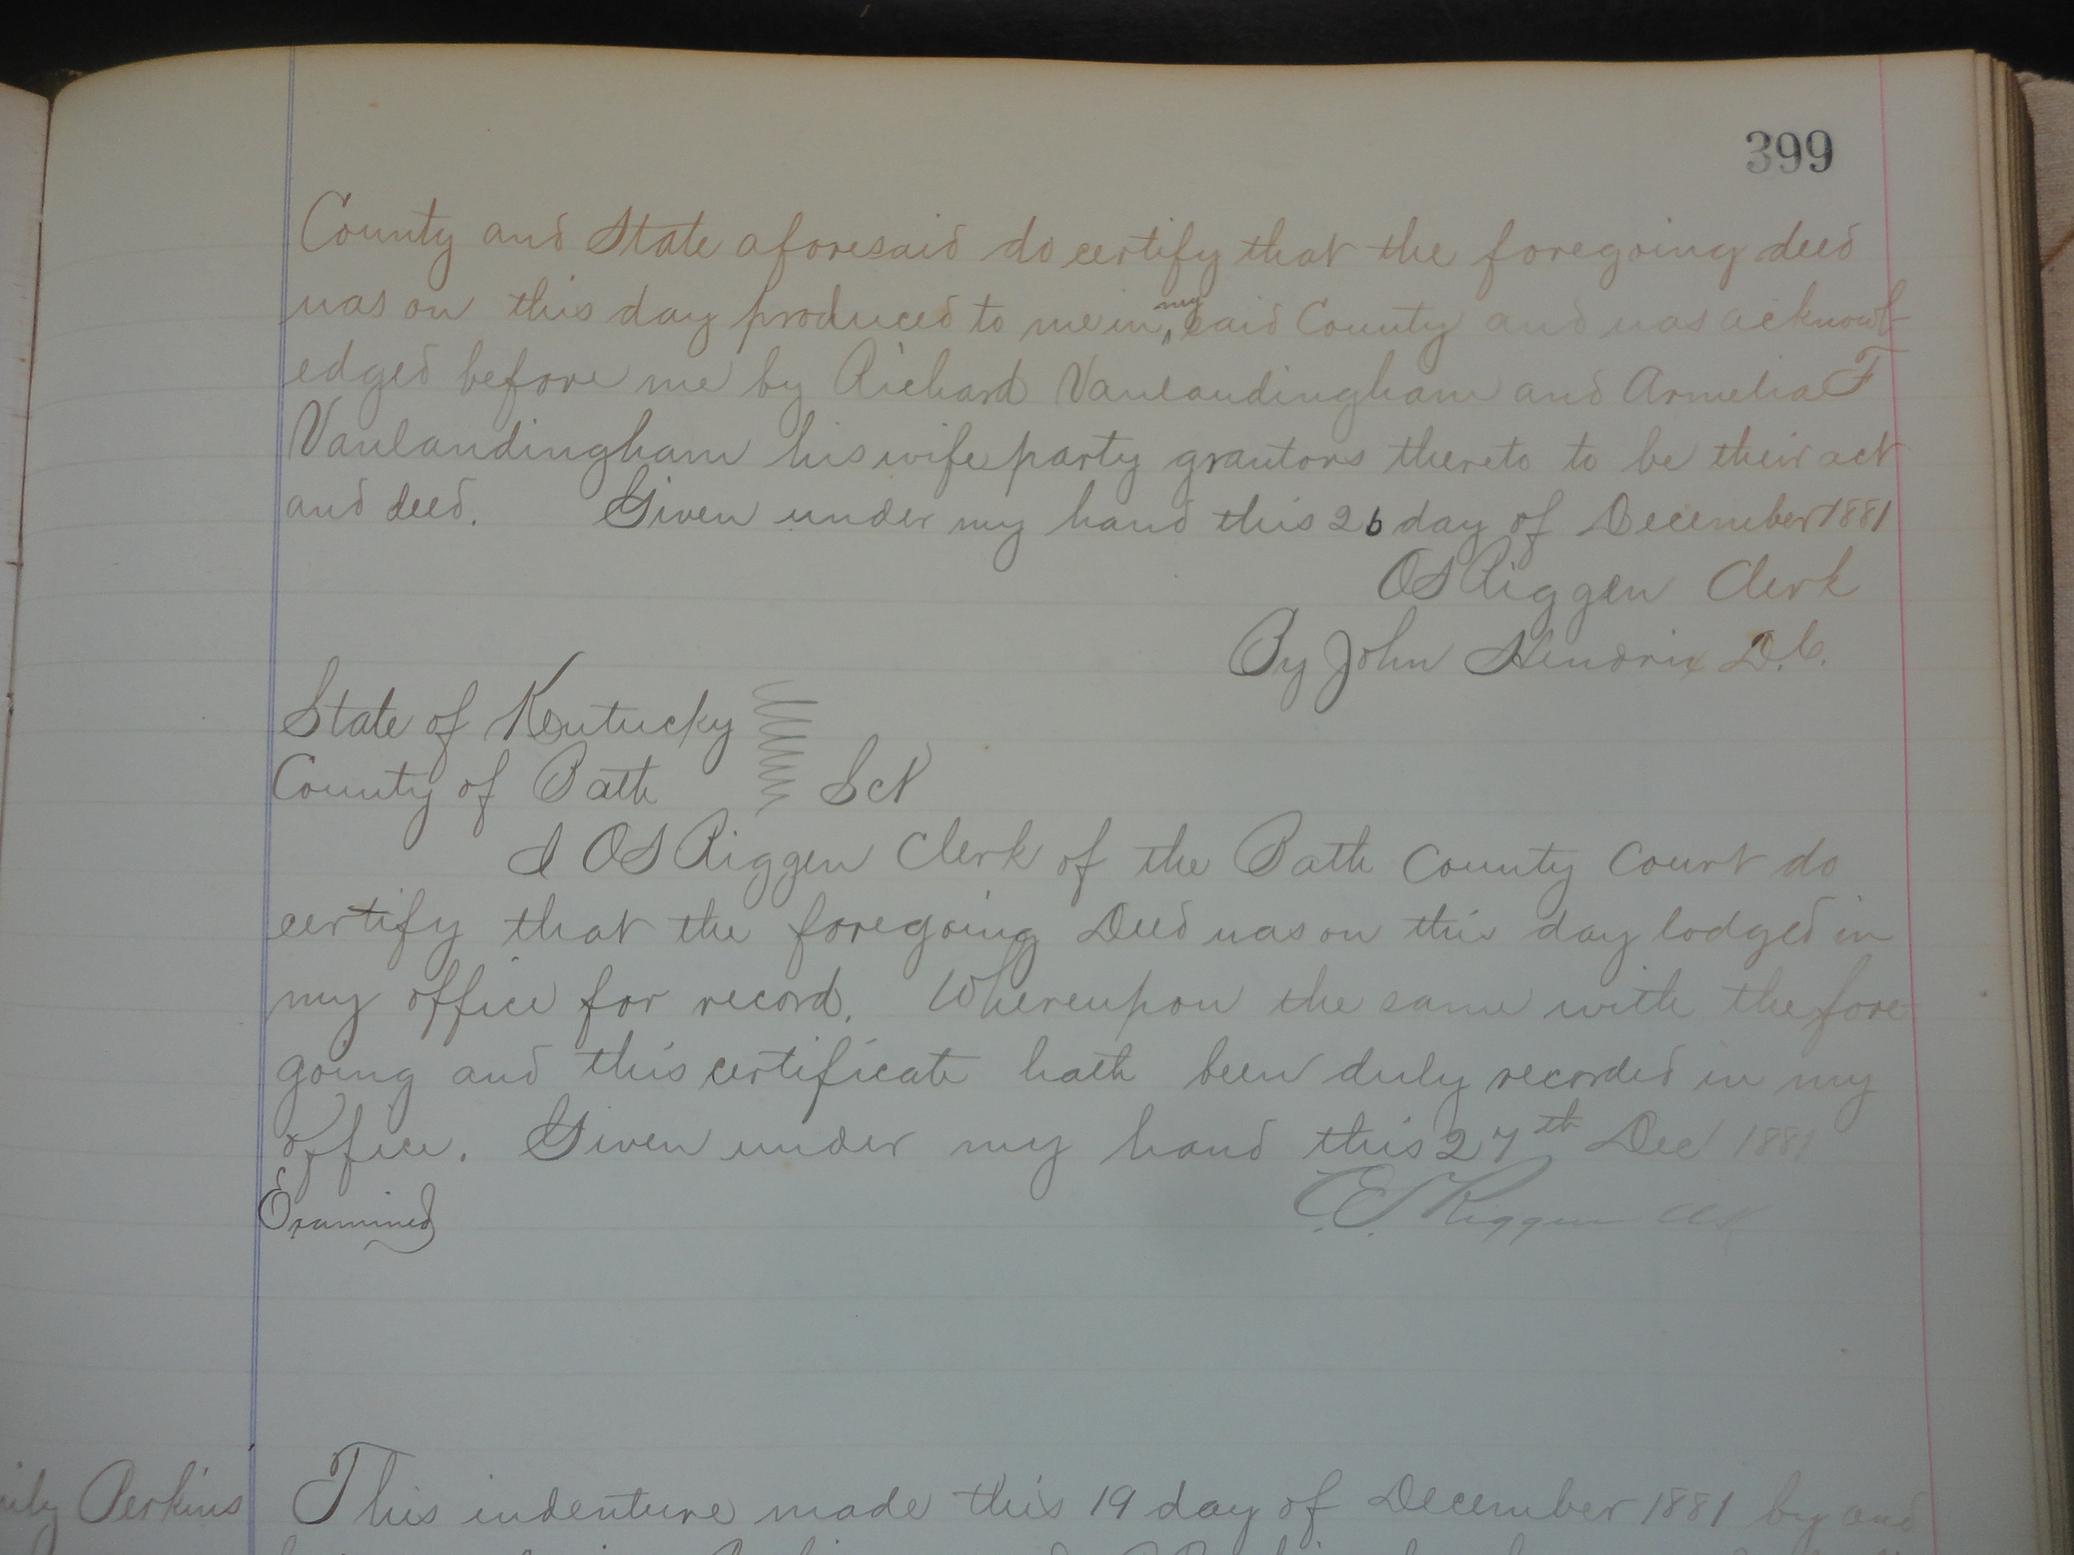 399
County and State aforesaid do certify that the foregoing deed
was on this day produced to me in my said County and was acknowl-
edged before me by Richard Vanlandingham and Armelia F
Vanlandingham his wife party grantors thereto to be their act
and deed. Given under my hand this 26 day of December 1881
OS Riggen Clerk
By John Hendrix D.C.
State of Kentucky
County of Bath Sct
I OS Riggen Clerk of the Bath County Court do
certify that the foregoing Deed was on this day lodged in
my office for record. Whereupon the same with the fore
going and this certificate hath been duly recorded in my
office. Given under my hand this 27th Dec 1881
Examined
Riggen Clk
Perkins
This indenture made this 19 day of December 1881 by and